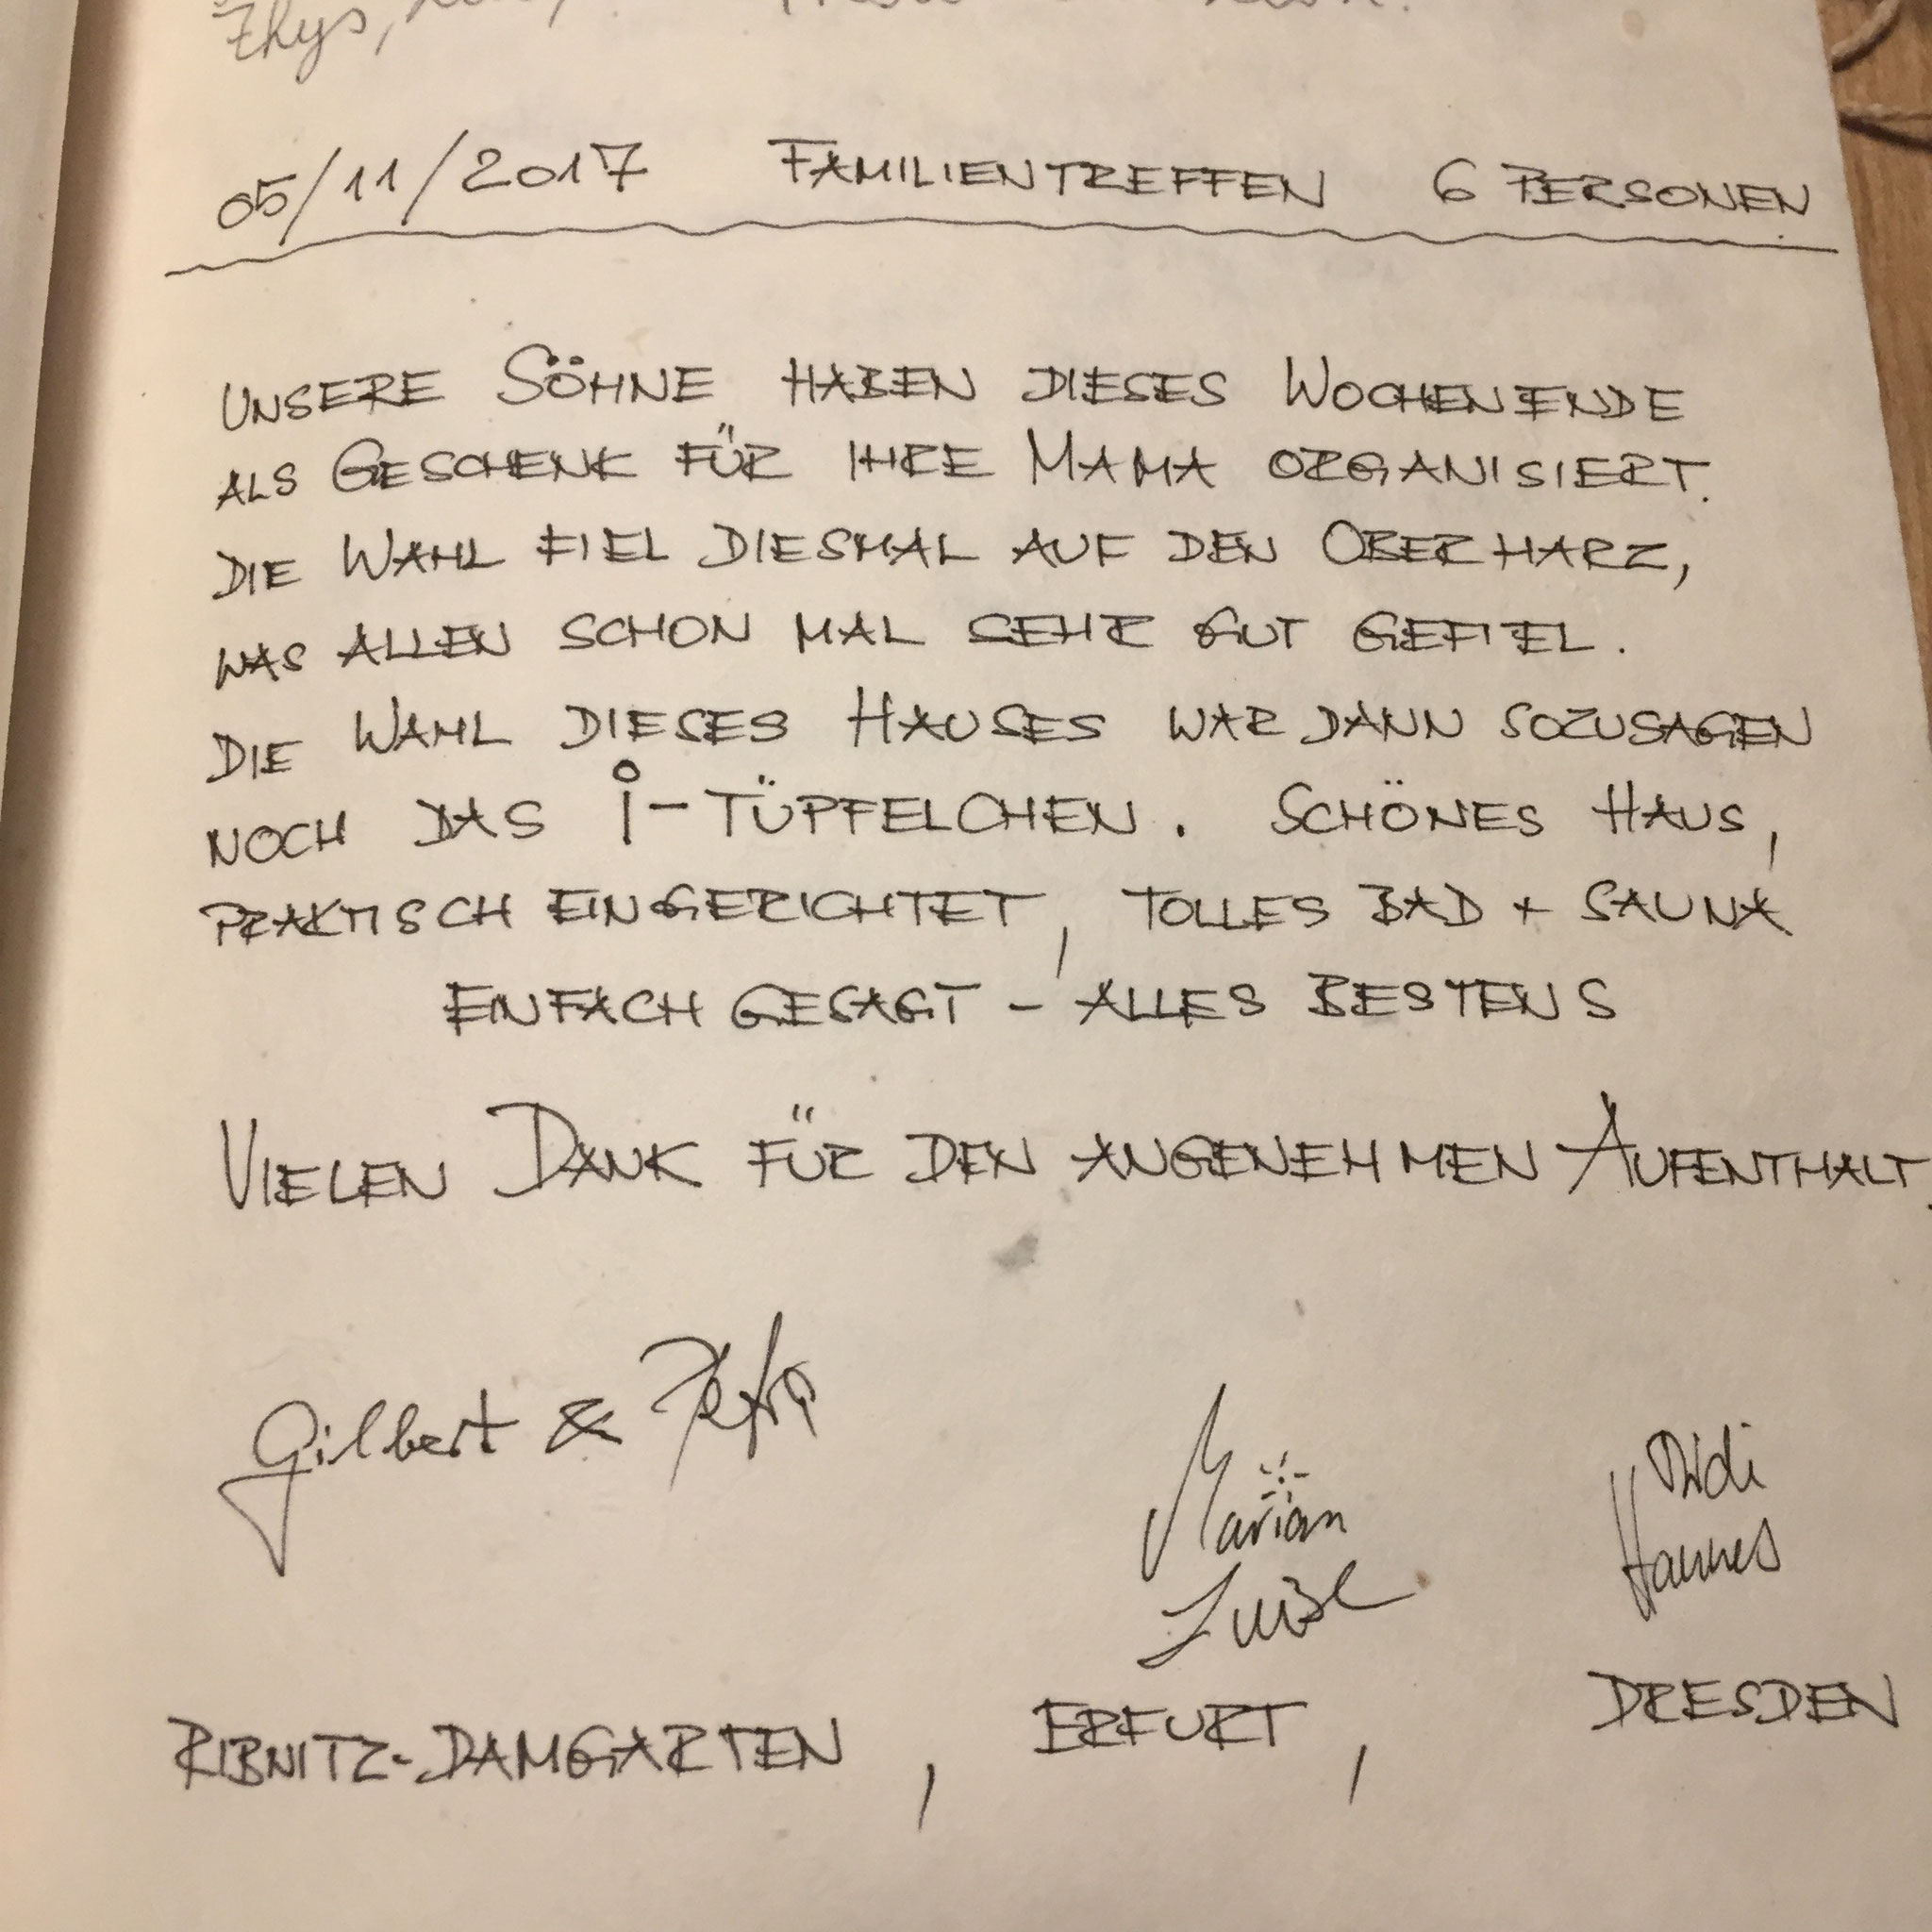 Thys,
05/11/2017 FAMILIENTREFFEN 6 PERSONEN
UNSERE SÖHNE HABEN DIESES WOCHENENDE
ALS GESCHENK FÜR IHRE MAMA ORGANISIERT.
DIE WAHL FIEL DIESMAL AUF DEN OBERHARZ,
WAS ALLEN SCHON MAL SEHR GUT GEFIEL.
DIE WAHL DIESES HAUSES WAR DANN SOZUSAGEN
NOCH DAS i-TÜPFELCHEN. SCHÖNES HAUS,
PRAKTISCH EINGERICHTET, TOLLES BAD + SAUNA
EINFACH GESAGT - ALLES BESTENS
VIELEN DANK FÜR DEN ANGENEHMEN AUFENTHALT.
Gilbert & Petra
Marian
Luise
Didi
Hannes
RIBNITZ-DAMGARTEN, ERFURT, DRESDEN